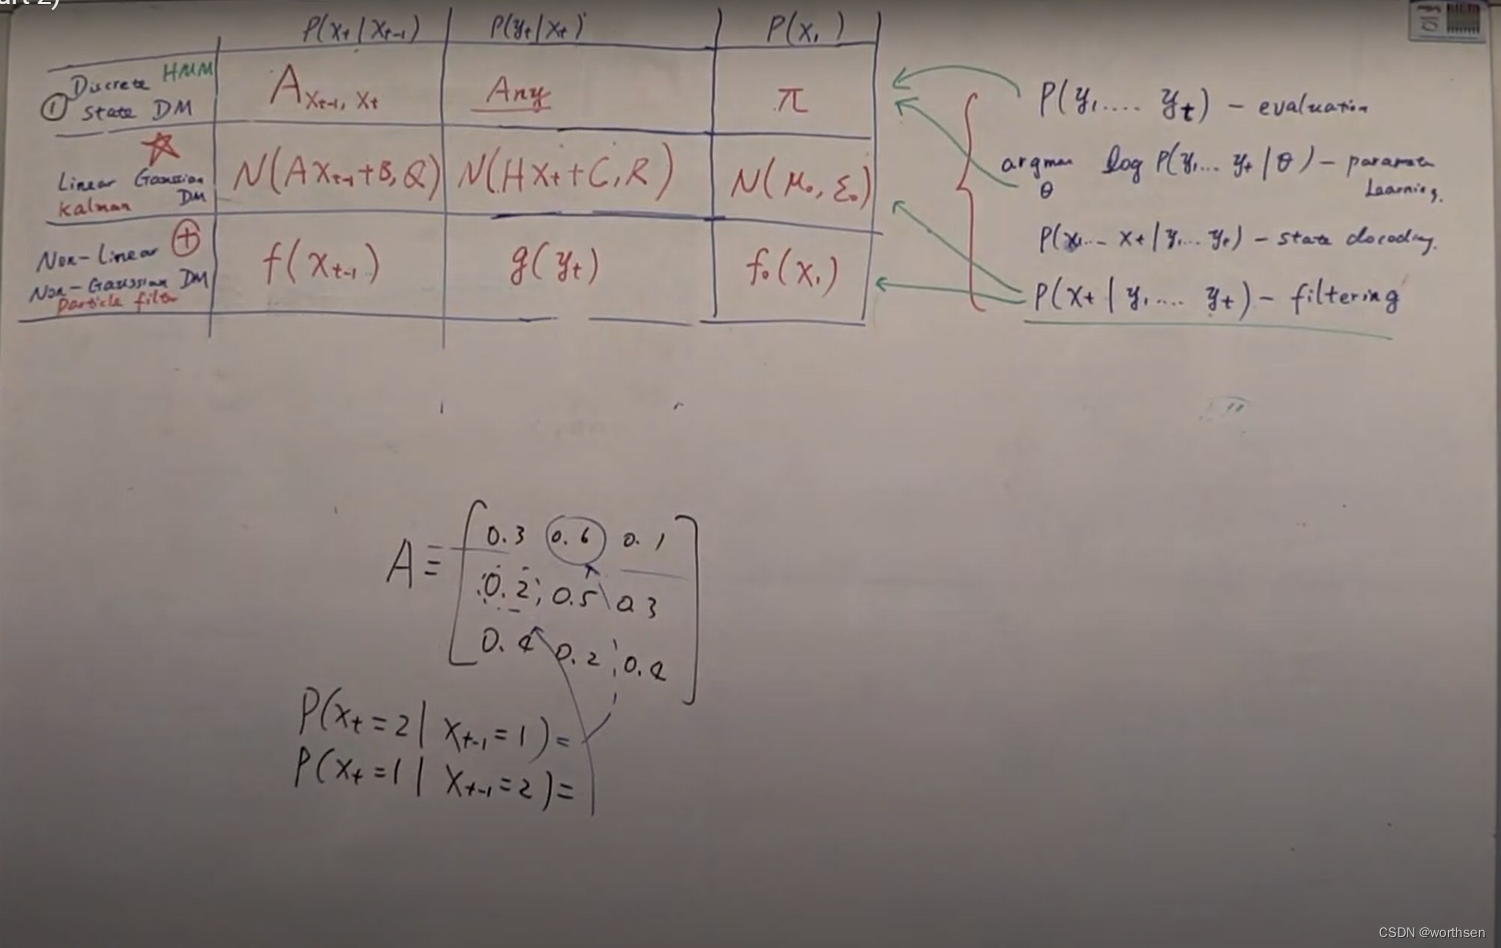 P(xt | xt-1) P(yt | xt) P(x1)
Discrete HMM
① State DM
A xt-1, xt Any π
Linear Gaussian
Kalman DM
N(Axt-1+B,Q) N(Hxt+C,R) N(μ0, Σ0)
Non-Linear
Non-Gaussian DM
Particle filter
f(xt-1) g(yt) f0(x1)
P(y1.... yt) - evaluation
argmax log P(y1... yt | θ) - parameter
θ Learning.
P(x1... xt | y1... yt) - state decoding.
P(xt | y1.... yt) - filtering
A = [0.3 0.6 0.1
0.2 0.5 0.3
0.4 0.2 0.4]
P(xt = 2 | xt-1 = 1) =
P(xt = 1 | xt-1 = 2) =
CSDN @worthsen